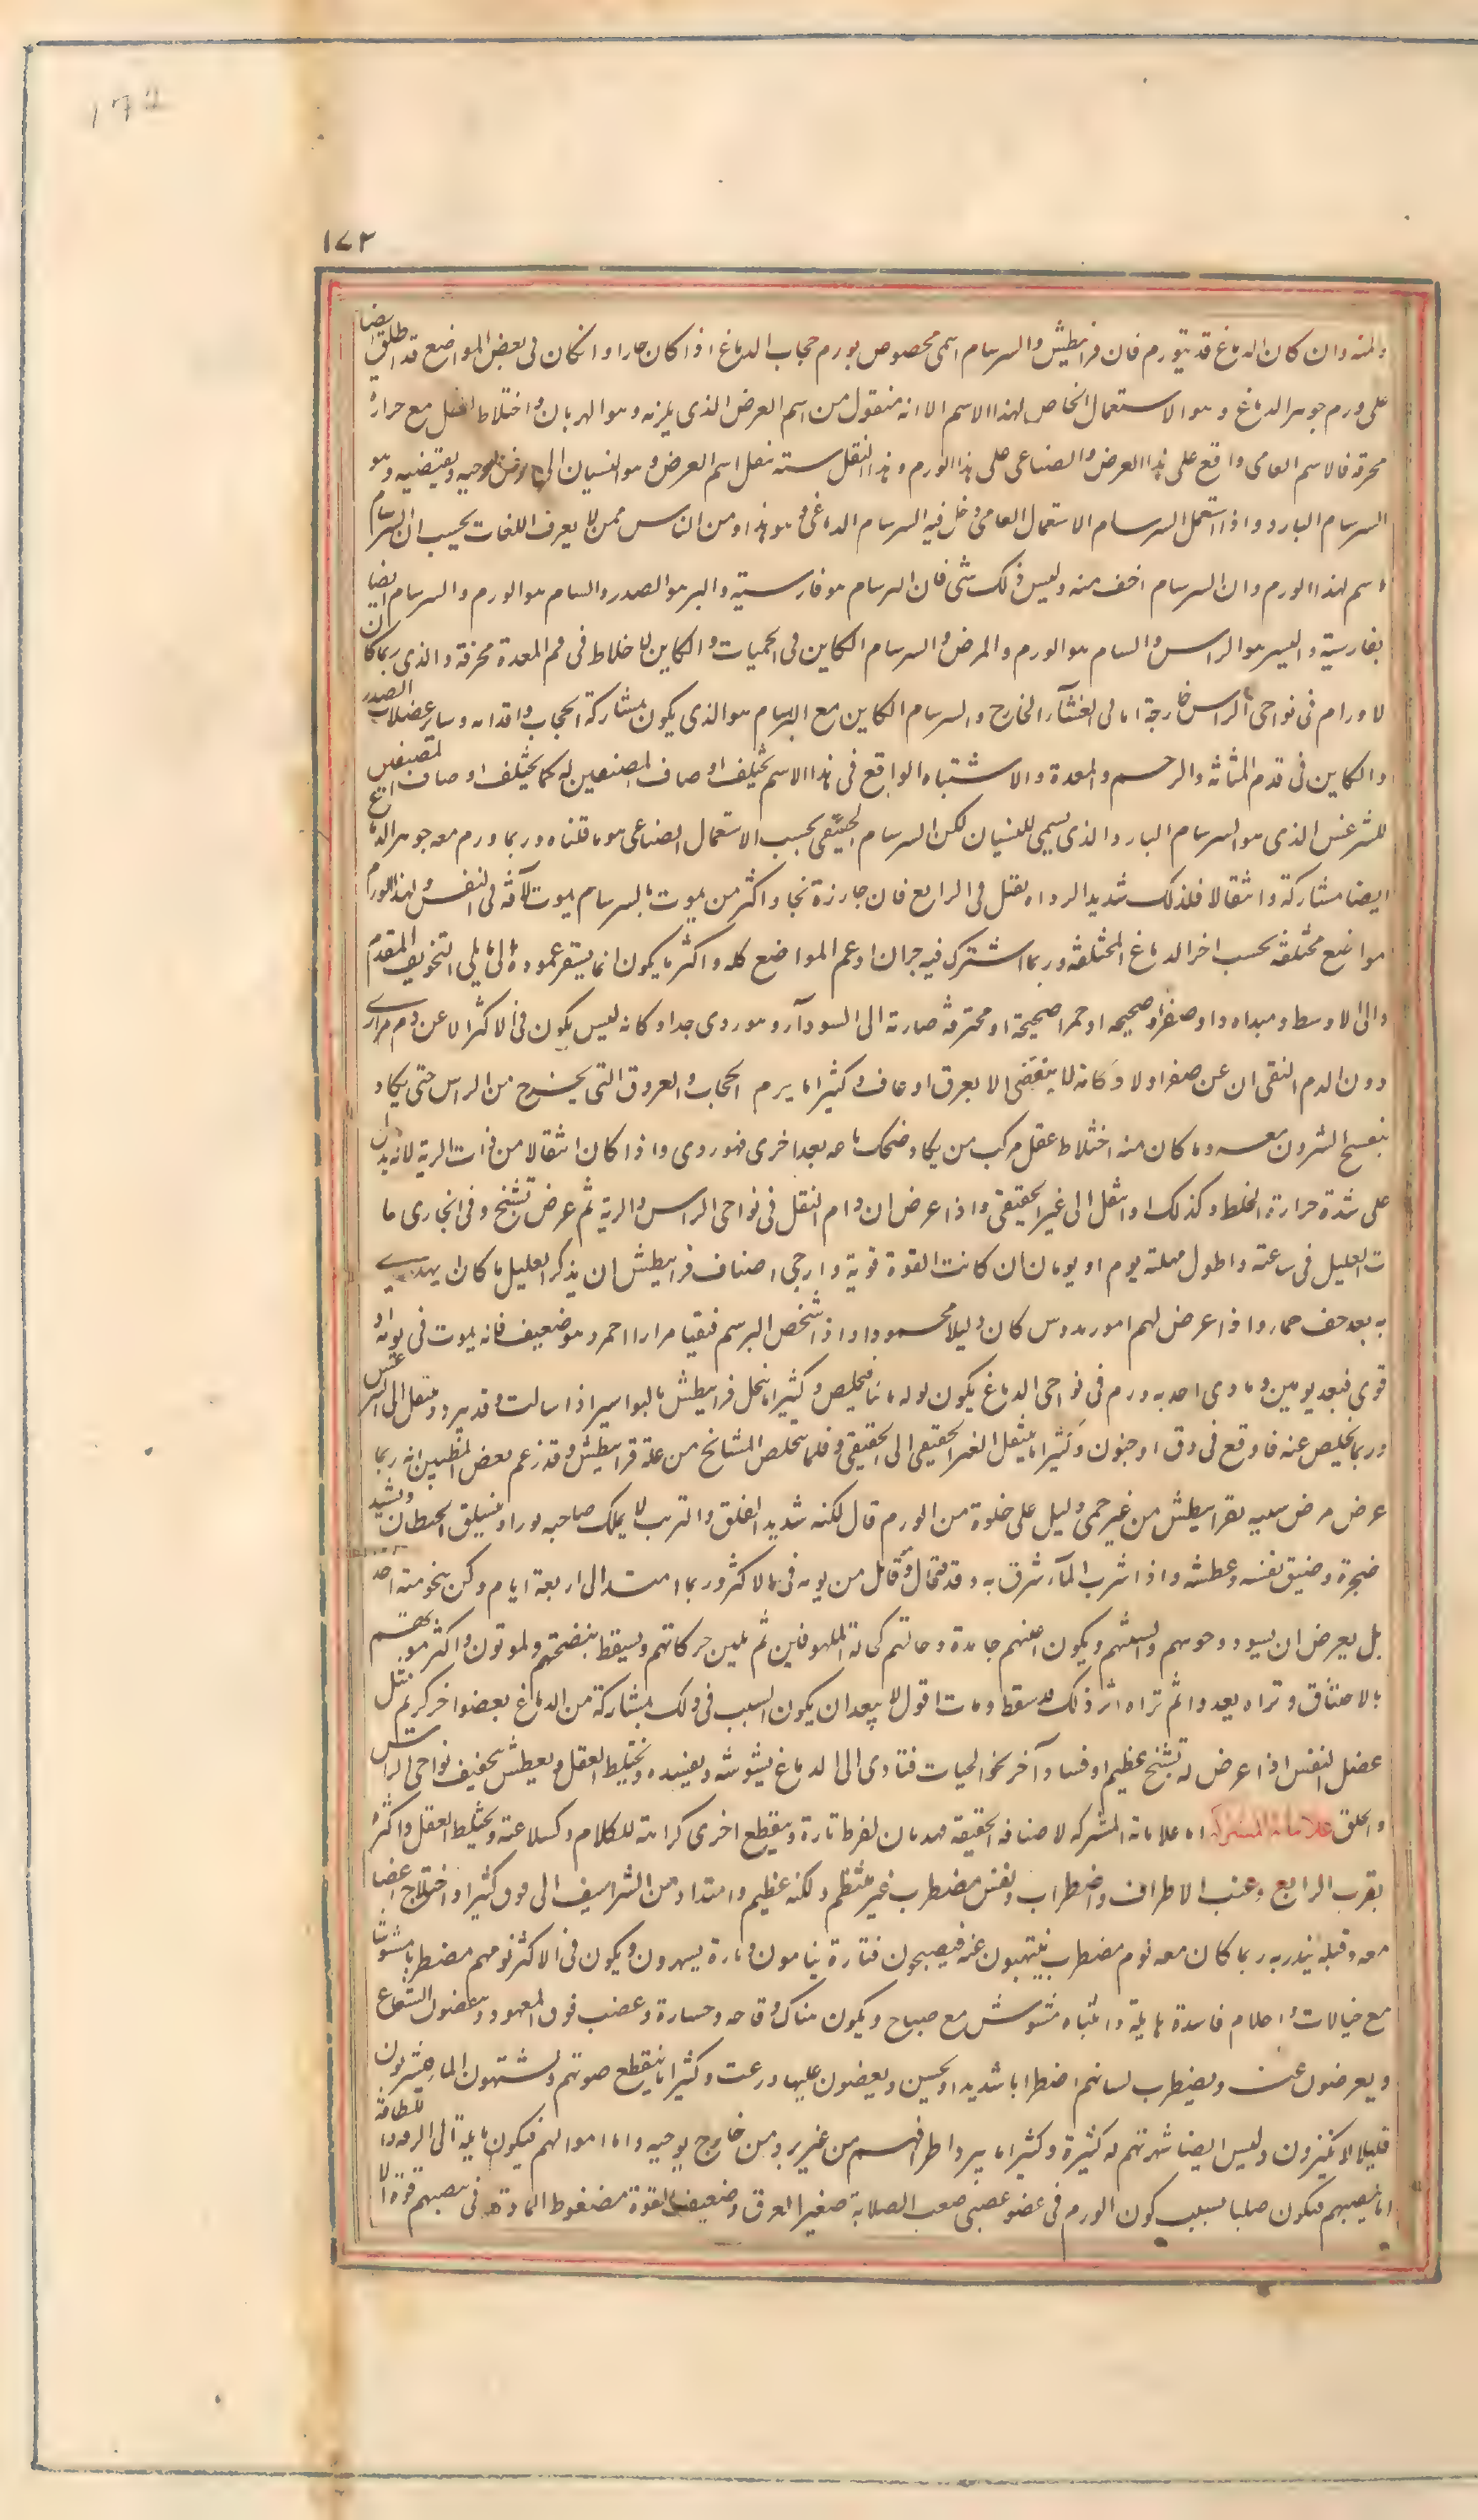 172
١٧٢
والمنه وان كان الدماغ قد يتورم فان قرانيطس والسرسام اسمى مخصوص بورم حجاب الدماغ اذا كان حارا وانكان فى بعض المواضع قد اطلق ايضا
على ورم جوهر الدماغ وهو الاستعمال الخاص لهذا الاسم الا انه منقول من اسم العرض الذى يلزمه وهو الهذيان واختلاط العقل مع حرارة
محرقة فالاسم العامى واقع على هذا العرض والصناعى على هذا الورم وهذا النقل ستة نقل اسم العرض وهو النسيان الى مرض يوجبه ويقتضيه وهو
السرسام البارد واذا استعمل السرسام الاستعمال العامى دخل فيه السرسام الدماغى وهو هذا ومن الناس ممن لا يعرف اللغات يحسب ان البرسام
اسم لهذا الورم وان السرسام اخف منه وليس ذلك شى فان البرسام هو فارسية والبر هو الصدر والسام هو الورم والسرسام ايضا
بفارسية والسر هو الراس والسام هو الورم والمرض والسرسام الكاين فى الحميات والكاين لاخلاط فى فم المعدة محرقة والذى ربما كان
لاورام فى نواحى الراس خارجة امالى الغشآء الخارج والسرسام الكاين مع البرسام هو الذى يكون بمشاركة الحجاب واقدامه وساير عضلات الصدر
والكاين فى قدم المثانة والرحم والمعدة والاشتباه الواقع فى هذا الاسم يختلف اوصاف المصنفين له كما يختلف اوصاف المصنفين
لليثرغس الذى هو السرسام البارد والذى يسمى للنسيان لكن السرسام الحقيقى بحسب الاستعمال الصناعى هو ما قلناه وربما ورم معه جوهر الدماغ
ايضا مشاركة وانتقالا فلذلك شديد الرداه يقتل فى الرابع فان جاوزة نجا واكثر من يموت بالسرسام يموت لآفة فى النفس ولهذا الورم
مواضع مختلفة بحسب اخر الدماغ المختلفة وربما اشترك فيه جزان او عم المواضع كله واكثر ما يكون انما يستقر عموده الى ما يلى التجويف المقدم
والى الاوسط ومبداه دا وصفراء صحيحه او حمرا صحيحة او محترقة صارته الى السودآء وهو ردى جدا وكانه ليس يكون فى الاكثر الا عن دم مرارى
دون الدم النقى ان عن صفرا ولا وكانه لا ينقضى الا بعرق او رعاف وكثيرا ما يرم الحجاب والعروق التى يخرج من الراس حتى يكاد
ينفسح الشرون معه وما كان منه اختلاط عقل مركب من بكا وضحك ساعه بعد اخرى فهو ردى واذا كان انتقالا من ذات الرية لانه يدل
على شدة حرارة الخلط وكذلك او انتقل الى غير الحقيقى واذا عرض ان دام الثقل فى نواحى الراس والرية ثم عرض تشنج وفى الجارى ما
ت العليل فى ساعته واطول مهلته يوم او يومان ان كانت القوة قوية وارجى اصناف قرانيطس ان يذكر العليل ما كان يهذى
به بعد خف حمار واذا عرض لهم امورمدوس كان دليلا محمودا واذا شخص البرسم فتقيا مرارا احمر وهو ضعيف فانه يموت فى يومه او
قوى فبعد يومين وما وى احد به ورم فى نواحى الدماغ يكون بوله مائيا فيخلص وكثيرا ما ينحل قرانيطس بالبواسير اذا سالت وقد يبرد وينتقل الى ليثرغس
وربما يخلص عنه فاوقع فى دق او جنون وكثيرا ما ينتقل الغير الحقيقى الى الحقيقى وقلما يتخلص المشايخ من علة قرانيطس وقد زعم بعض المتطببين انه ربما
عرض مرض شبيه بقرانيطس من غير حمى دليل على خلوة من الورم قال لكنه شديد القلق والترب لا يملك صاحبه بورا ويتسلق الحيطان ويشتد
ضجرة وضيق نفسه وعطشه واذا شرب الماء شرق به وقد مقال وقاتل من يومه فى الاكثر وربما امتد الى اربعة ايام ولكن ينحو منه احد
بل يعرض ان يسود وجوههم والسنتهم ويكون اعينهم جامدة وحالتهم كحالة الملهوفين ثم تلين حركاتهم ويسقط نبضهم ويموتون واكثر موتهم
بالاختناق وتراه يعد واثم تراه اثر ذلك قد سقط ومات اقول لا يبعد ان يكون السبب فى ذلك بمشاركة من الدماغ بعضو اخر كريم مثل
عضل النفس اذا عرض له تشنج عظيم او فساد آخر نحو الحيات فتادى الى الدماغ يشوشه ويفسده ويختلط العقل ويعطش بتجفيف نواحى الراس
والحلق علامات المشتركه اما علاماته المشتركه لاصنافه الحقيقة فهذيان لفرط تارة ويقطع اخرى كراهة للكلام وكسلا عنه ويختلط العقل واكثره
بقرب الرابع وعبث الاطراف واضطراب ونفس مضطرب غير منتظم ولكنه عظيم وامتداد من الشراسيف الى فوق كثيرا واختلاج اعضا
معه وقبله ينذر به ربما كان معه نوم مضطرب ينتبهون عنه فيصيحون فتارة ينامون وتارة يسهرون ويكون فى الاكثر نومهم مضطربا مشوشا
مع خيالات واحلام فاسدة هايلة وانتباه مشوش مع صياح ويكون هناك وقاحه وجسارة وغضب فوق المعهود ويبغضون الشعاع
ويعرضون عنه ويضطرب لسانهم اضطرابا شديدا ويخشن ويعضون عليها ورعت وكثيرا ما ينقطع صوتهم ويشتهون الما فيشربون
قليلا لا يكثرون وليس ايضا شهوتهم له كثيرة وكثيرا ما يبرد اطرافهم من غير برد من خارج يوجبه واما ابوالهم فيكون مايلة الى الرقة واللطافة
اما نبضهم فيكون صلبا بسبب كون الورم فى عضو عصبى صعب الصلابة صغير العرق وضعيف القوة مضغوط المادة فى نبضهم قوة ال